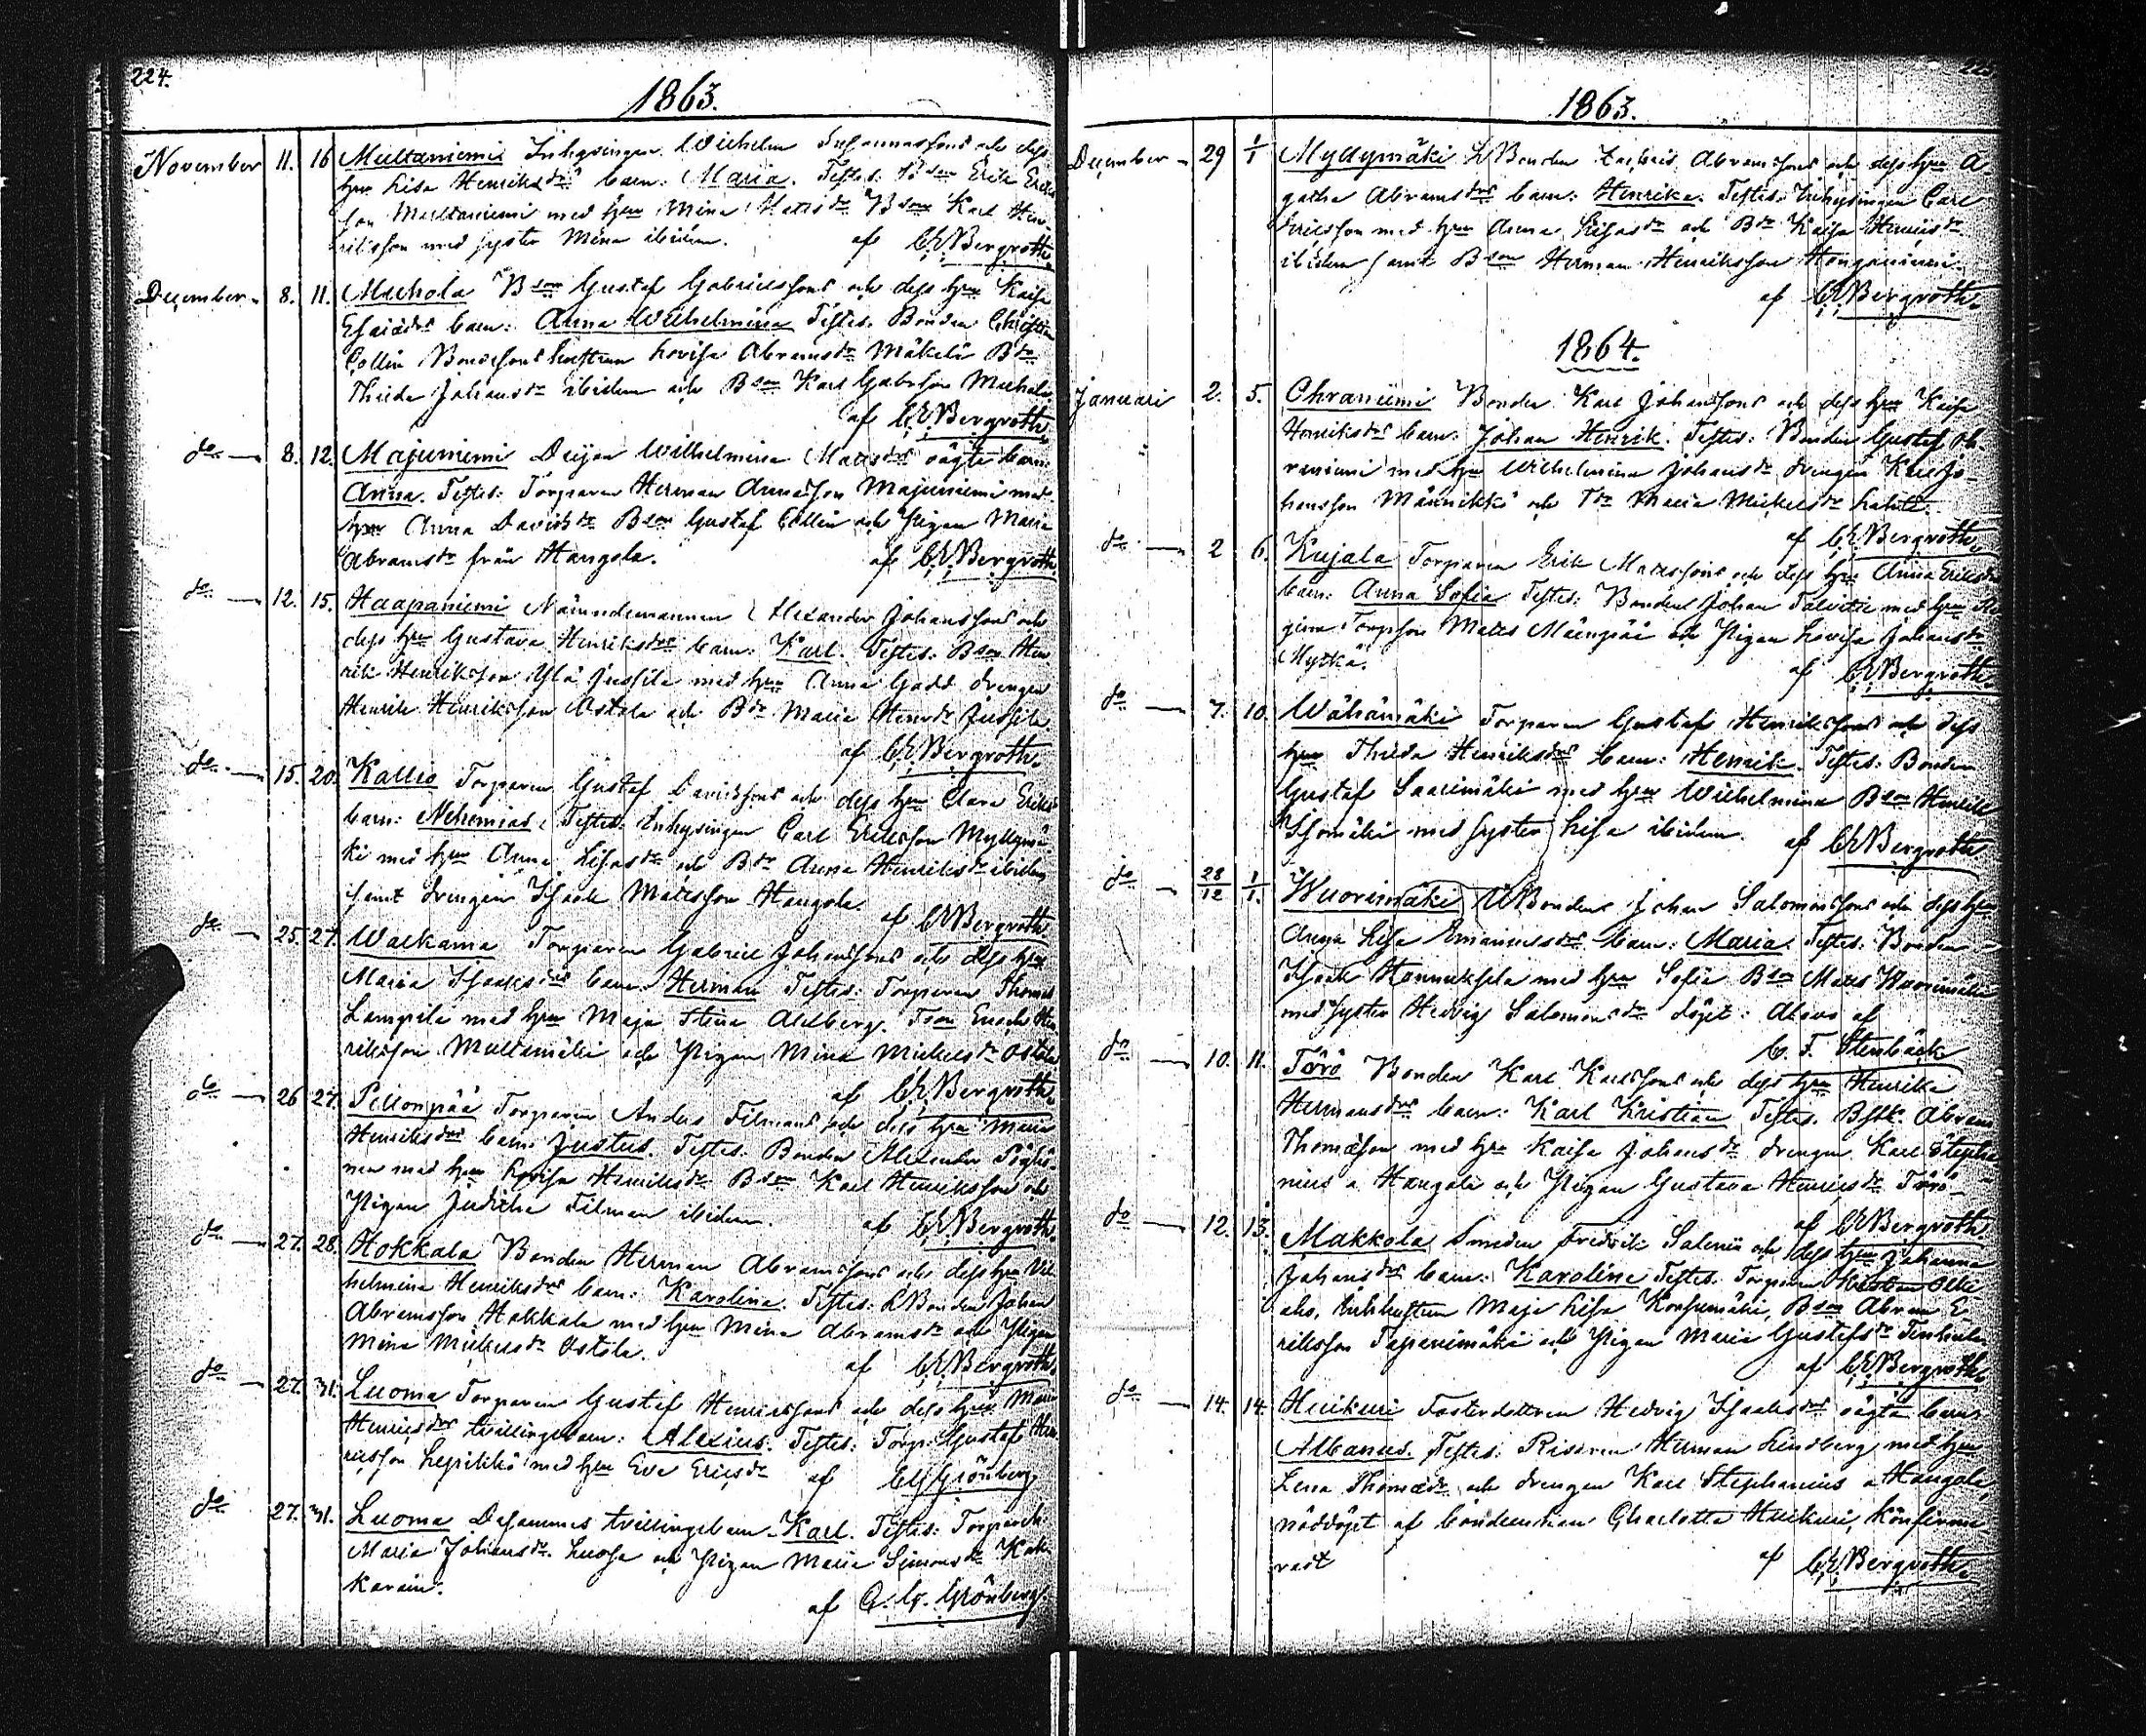 224.
1863.
November 11. 16 Multaniemi Inhysingen Wilhelm Johannssons och dess
hru Lisa Henriksdrs barn: Maria. Testes: Erik Ericks
son Multaniemi med hru Mina Mattsdr Bson Karl Hen
riksson med syster Mina ibidem. af C.E.Bergroth.
December 8. 11. Muchola Bson Gustaf Gabrielssons och dess hru Kaisa
Esaiædrs barn: Anna Wilhelmina Testes: Bonden Christian
Collin Bondesons hustrun Lovisa Abramsdr Mäkelä Bdr
Thilda Johansdr ibidem och Bson Karl Gabrsson Muchola
af C.E.Bergroth.
do 8. 12. Majuniemi Deijan Wilhelmina Mattsdrs oägta barn:
Anna. Testes: Torparen Herman Annasson Majuniemi med
hru Anna Davidsdr Bson Gustaf Collin och Pigan Maria
Abramsdr från Hangola. af C.E.Bergroth.
do 12. 15. Haapaniemi Nämndemannen Alexander Johanssons och
dess hru Gustava Henriksdrs barn: Karl. Testes: Bson Hen
rik Henriksson Ylä Jussila med hru Anna Gadd drengen
Henrik Henriksson Ostola och Bdr Maria Henrsdr Jussila.
af C.E.Bergroth.
do 15. 20. Kallio Torparen Gustaf Davidssons och dess hru Clara Eriksdrs
barn: Nehemias. Testes: Inhysingen Carl Ericsson Myllymä
ki med hru Anna Lisasdr och Bdr Anna Henriksdr ibidem
samt drengen Isaak Mattsson Hangola.
af C.E.Bergroth.
do 25. 27. Walkama Torparen Gabriel Johanssons och dess hru
Maria Isaaksdrs barn: Herman Testes: Torparen Thomas
Lampila med hru Maja Stina Ahlberg. Tson Enoch Hen
riksson Multamäki och Pigan Mina Mickelsdr Ostola
af C.E.Bergroth.
do 26 27. Pellonpää Torparen Anders Filmans och dess hru Maria
Henriksdrs barn: Justus. Testes: Bonden Alexander Pöyhö
nen med hru Lovisa Henriksdr Bson Karl Henriksson och
Pigan Juditha Filman ibidem. af C.E.Bergroth.
do 27. 28. Hokkala Bonden Herman Abramssons och dess hru Vil
helmina Henriksdrs barn: Karolina. Testes: LBonden Johan
Abramsson Hokkala med hru Mina Abramsdr och Pigan
Mina Mickelsdr Ostola. af C.E.Bergroth.
do 27. 31. Luoma Torparen Gustaf Henricssons och dess hru Maria
Henricsdrs tvillingebarn: Alexius. Testes: Torp: Gustaf Hen
ricsson Lepikkö med hru Eva Ericsdr af C.G.Grönberg.
do 27. 31. Luoma Desammes tvillingebarn Karl. Testes: Torpareh.
Maria Johansdr Luosa och Pigan Maria Simonsdr Kok
karain. af C.G. Grönberg.
1863.
December 29 1/1 Myllymäki LBonden Zachris Abramssons och dess hru A
gatha Abramsdrs barn: Henrika. Testes: Inhysingen Carl
Ericsson med hru Anna Lisasdr och Bdr Kaisa Henricsdr
ibidem samt Bson Herman Henriksson Honganiemi.
af C.E.Bergroth.
1864.
Januari 2. 5. Ohraniemi Bonden Karl Johanssons och dess hru Kaisa
Henriksdrs barn: Johan Henrik. Testes: Bonden Gustaf Oh
raniemi med hru Wilhelmina Johansdr drengen Karl Jo
hansson Männikkö och Tdr Maria Mickelsdr Lahti.
af C.E.Bergroth.
do 2 6. Kujala Torparen Erik Mattssons och dess hru Anna Eriksdrs
barn: Anna Sofia Testes: Bonden Johan Talvitie med hru Re
gina Torpson Matts Mäenpää och Pigan Lovisa Johansdr
Mytkä. af C.E.Bergroth.
do 7. 10. Wähämäki Torparen Gustaf Henrikssons och dess
hru Thilda Henriksdrs barn: Henrik. Testes: Bonden
Gustaf Saarimäki med hru Wilhelmina Bson Henrik
Isomäki med syster Lisa ibidem. af C.E.Bergroth.
do 28/12 1/1. Wuorimäki Bonden Johan Salomonssons och dess hru
Anna Lisa Emanuelsdrs barn: Maria. Testes: Bonden
Isaak Hannuksela med hru Sofia Bson Matts Wuorimäki
med syster Hedvig Salomonsdr döpt i Alavo af
C. F. Stenbäck
do 10. 11. Törö Bonden Karl Karlssons och dess hru Henrika
Hermansdrs barn: Karl Kristian Testes: Abram
Thomæsson med hru Kaisa Johansdr drengen Karl Stepha
nius a Hangola och Pigan Gustava Henricsdr Törö
af C.E.Bergroth.
do 12. 13. Makkola Smeden Fredrik Salenii och dess hru Johanna
Johansdrs barn: Karolina Testes: Torparen
aho, Maja Lisa Konsumäki, Bson Abram E
riksson Tapanimäki och Pigan Maria Gustafsdr
af C.E.Bergroth.
do 14. 14. Hiukuri Fosterdottren Hedvig Isaaksdrs oägta barn
Albanus. Testes: Herman Lindberg med hru
Lena Thomædr och drengen Karl Stephanius a Hangola,
nöddöpt af bondeenkan Charlotta Hiukuri, konfirme
radt af C.E.Bergroth.